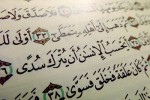 فَلَا صَدَّقَ وَلَا
أَهْلِهِۦ يَتَمَطَّىٰٓ ٣٣ أَوْلَىٰ لَكَ
أَيَحْسَبُ ٱلْإِنسَٰنُ أَن يُتْرَكَ سُدًى ٣٦
كَانَ عَلَقَةً فَخَلَقَ فَسَوَّىٰ ٣٨